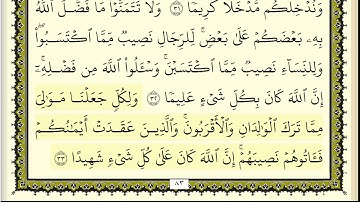 وَنُدْخِلْكُم مُّدْخَلًا كَرِيمًا ٣١ وَلَا تَتَمَنَّوْا۟ مَا فَضَّلَ ٱللَّهُ
بِهِۦ بَعْضَكُمْ عَلَىٰ بَعْضٍ ۚ لِّلرِّجَالِ نَصِيبٌ مِّمَّا ٱكْتَسَبُوا۟ ۖ
وَلِلنِّسَآءِ نَصِيبٌ مِّمَّا ٱكْتَسَبْنَ ۚ وَسْـَٔلُوا۟ ٱللَّهَ مِن فَضْلِهِۦٓ ۗ
إِنَّ ٱللَّهَ كَانَ بِكُلِّ شَىْءٍ عَلِيمًا ٣٢ وَلِكُلٍّ جَعَلْنَا مَوَٰلِىَ
مِمَّا تَرَكَ ٱلْوَٰلِدَانِ وَٱلْأَقْرَبُونَ ۚ وَٱلَّذِينَ عَقَدَتْ أَيْمَٰنُكُمْ
فَـَٔاتُوهُمْ نَصِيبَهُمْ ۚ إِنَّ ٱللَّهَ كَانَ عَلَىٰ كُلِّ شَىْءٍ شَهِيدًا ٣٣
٨٣